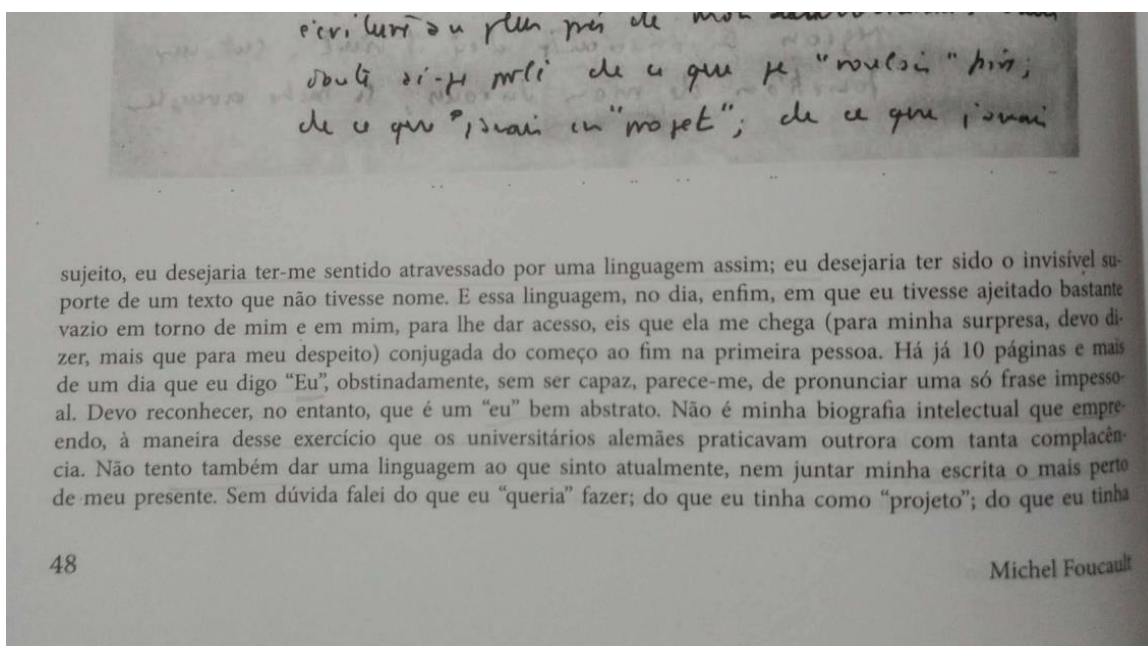 écriture au plus près de mon
doute, ai-je parlé de ce que je "voulais" faire;
de ce que j'avais en "projet"; de ce que j'avais
sujeito, eu desejaria ter-me sentido atravessado por uma linguagem assim; eu desejaria ter sido o invisível su-
porte de um texto que não tivesse nome. E essa linguagem, no dia, enfim, em que eu tivesse ajeitado bastante
vazio em torno de mim e em mim, para lhe dar acesso, eis que ela me chega (para minha surpresa, devo di-
zer, mais que para meu despeito) conjugada do começo ao fim na primeira pessoa. Há já 10 páginas e mais
de um dia que eu digo “Eu”, obstinadamente, sem ser capaz, parece-me, de pronunciar uma só frase impesso-
al. Devo reconhecer, no entanto, que é um “eu” bem abstrato. Não é minha biografia intelectual que empre-
endo, à maneira desse exercício que os universitários alemães praticavam outrora com tanta complacên-
cia. Não tento também dar uma linguagem ao que sinto atualmente, nem juntar minha escrita o mais perto
de meu presente. Sem dúvida falei do que eu “queria” fazer; do que eu tinha como “projeto”; do que eu tinha
48
Michel Foucault